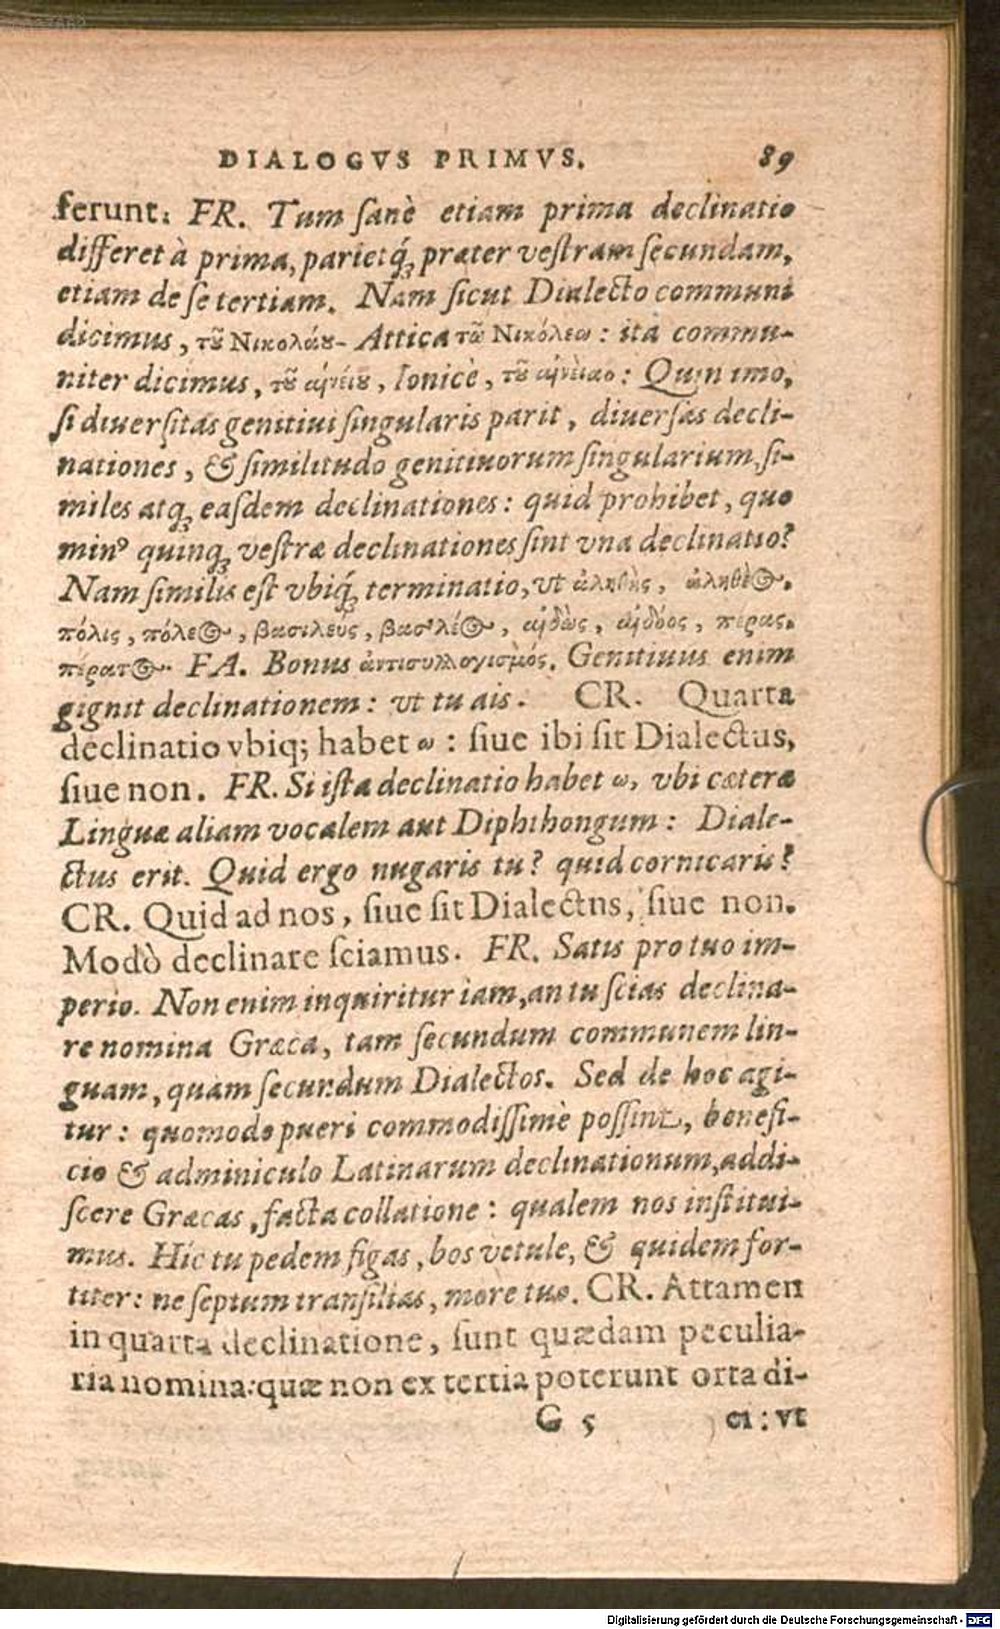 DIALOGVS PRIMVS. 89
ferunt: FR. Tum sanè etiam prima declinatio
differet à prima, parietq́; præter vestram secundam,
etiam de se tertiam. Nam sicut Dialecto communi
dicimus, τοῦ Νικολάου- Attica τῶ Νικόλεω: ita commu-
niter dicimus, τοῦ αἰνείου, Ionicè, τοῦ αἰνείαο: Quin imo,
si diuersitas genitiui singularis parit, diuersas decli-
nationes, & similitudo genitiuorum singularium, si-
miles atq; easdem declinationes: quid prohibet, quo
minꝰ quinq; vestræ declinationes sint vna declinatio?
Nam similis est vbiq́; terminatio, vt ἀληθὴς, ἀληθέος.
πόλις, πόλεος, βασιλεύς, βασιλέος, αἰδὼς, αἰδόος, πέρας.
πέρατος. FA. Bonus ἀντισυλλογισμός. Genitiuus enim
gignit declinationem: vt tu ais. CR. Quarta
declinatio vbiq; habet ω: siue ibi sit Dialectus,
siue non. FR. Si ista declinatio habet ω, vbi cæteræ
Linguæ aliam vocalem aut Diphthongum: Diale-
ctus erit. Quid ergo nugaris tu? quid cornicaris?
CR. Quid ad nos, siue sit Dialectus, siue non.
Modò declinare sciamus. FR. Satis pro tuo im-
perio. Non enim inquiritur iam, an tu scias declina-
re nomina Græca, tam secundum communem lin-
guam, quàm secundum Dialectos. Sed de hoc agi-
tur: quomodo pueri commodissimè possint, benefi-
cio & adminiculo Latinarum declinationum, addi-
scere Græcas, facta collatione: qualem nos institui-
mus. Hic tu pedem figas, bos vetule, & quidem for-
titer: ne septum transilias, more tuo. CR. Attamen
in quarta declinatione, sunt quædam peculia-
ria nomina: quæ non ex tertia poterunt orta di-
G 5 ci: vt
Digitalisierung gefördert durch die Deutsche Forschungsgemeinschaft - DFG